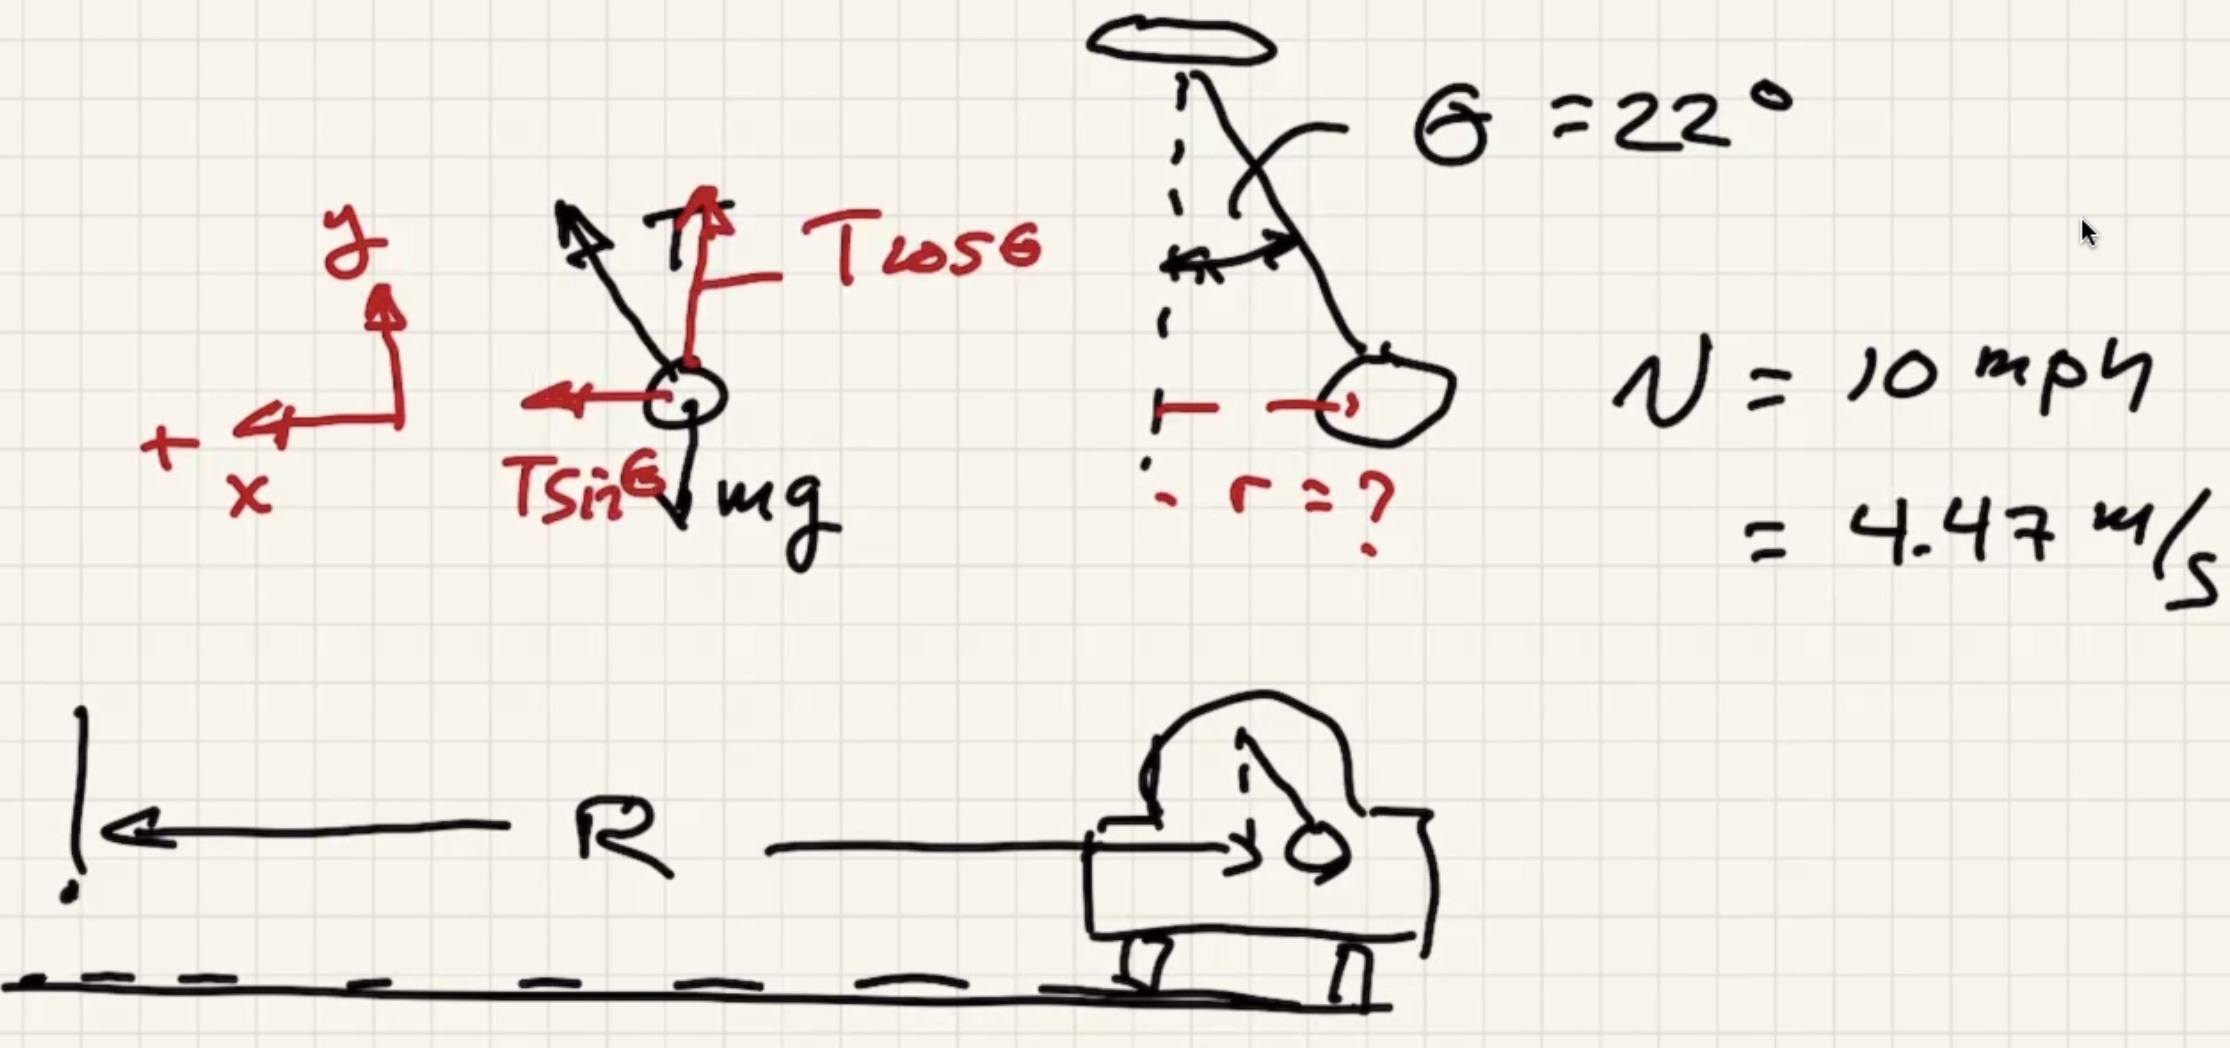 θ = 22°
y
T
T cos θ
+
x
T sin θ
mg
r = ?
v = 10 mph
= 4.47 m/s
R